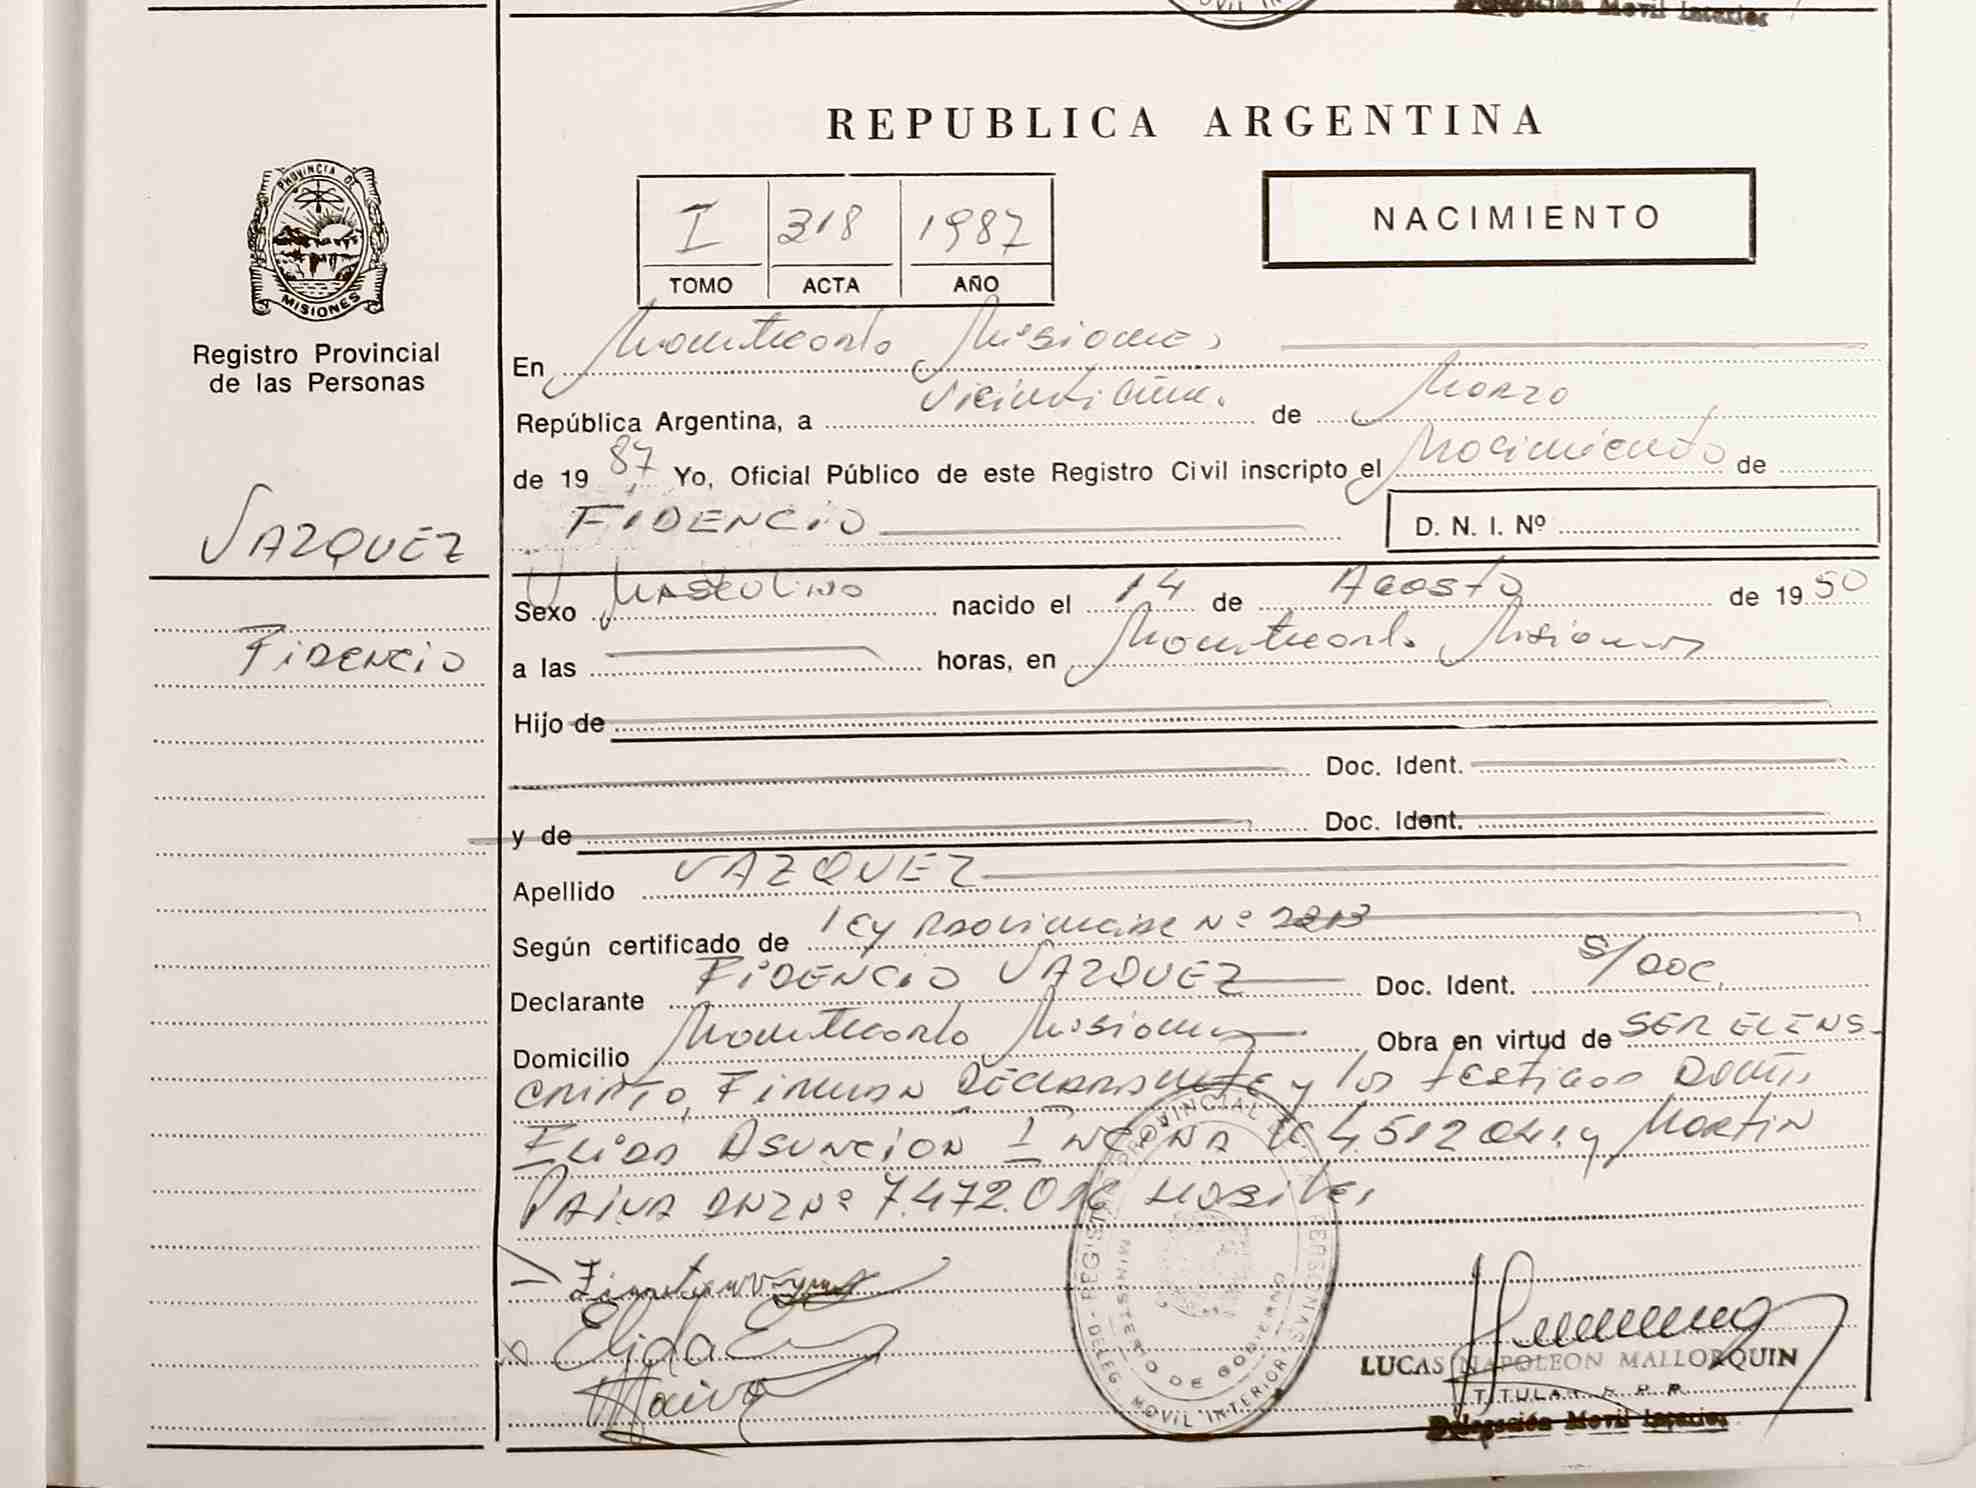 Delegación Movil Interior
REPUBLICA ARGENTINA
PROVINCIA DE
MISIONES
Registro Provincial
de las Personas
VAZQUEZ
Fidencio
I 318 1987
TOMO ACTA AÑO
NACIMIENTO
En Montecarlo Misiones
República Argentina, a de Marzo
de 19 87 Yo, Oficial Público de este Registro Civil inscripto el Nacimiento de
FIDENCIO D. N. I. Nº
Sexo Masculino nacido el 14 de Agosto de 19 50
a las horas, en Montecarlo Misiones
Hijo de
Doc. Ident.
y de Doc. Ident.
Apellido VAZQUEZ
Según certificado de Ley Provincial Nº 2213
Declarante FIDENCIO VAZQUEZ Doc. Ident. S/DOC.
Domicilio Montecarlo Misiones Obra en virtud de SER EL INS-
CRIPTO, Firman Declarante y los testigos
Elida Asuncion 4.512.041 y Martin
Paiva DNI Nº 7.472.016
Elida
Paiva
REGISTRO PROVINCIAL DE LAS PERSONAS
MINISTERIO DE GOBIERNO
DELEG. MOVIL INTERIOR
LUCAS NAPOLEON MALLORQUIN
TITULAR R. P. P.
Delegación Movil Interior